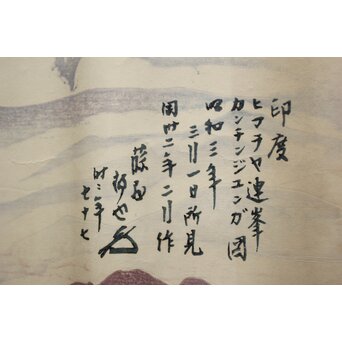 印度
ヒマラヤ連峯
カンチンジエンガ図
昭和三年
三月一日所見
同廿二年二月作
藤
時二年
七十七